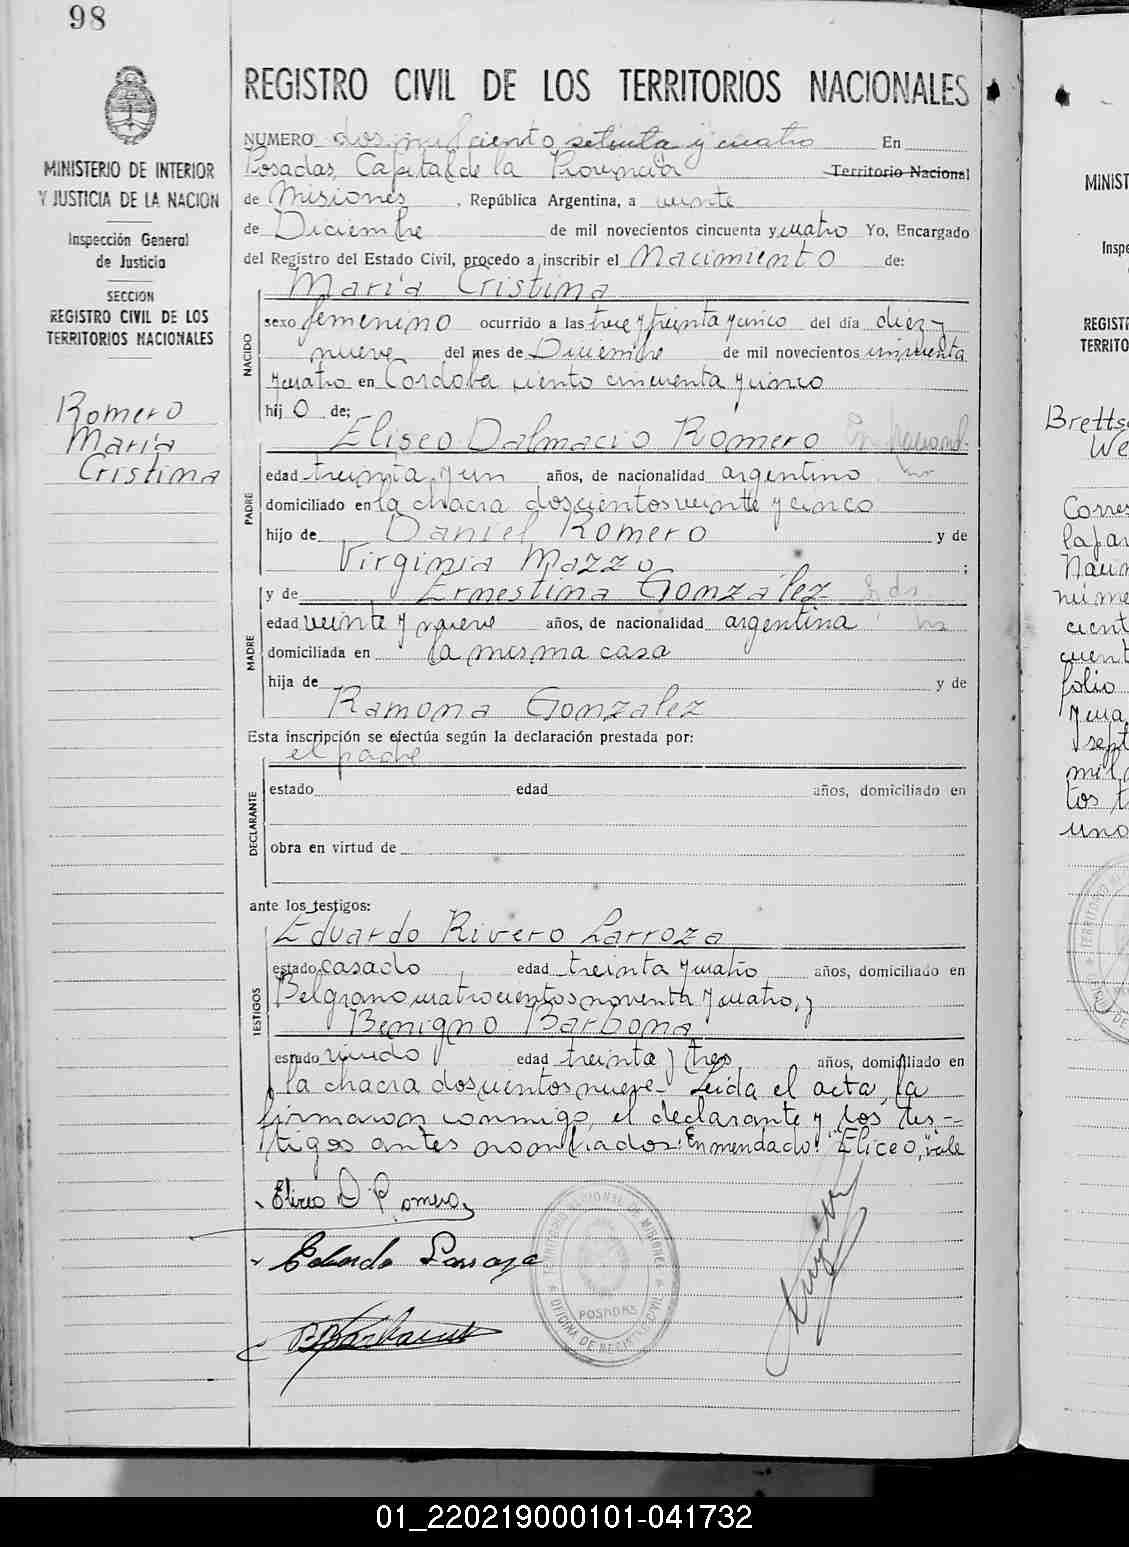 98
MINISTERIO DE INTERIOR
Y JUSTICIA DE LA NACION
Inspección General
de Justicia
SECCION
REGISTRO CIVIL DE LOS
TERRITORIOS NACIONALES
Romero
María
Cristina
REGISTRO CIVIL DE LOS TERRITORIOS NACIONALES
NUMERO dos mil ciento setenta y cuatro En
Posadas, Capital de la Provincia Territorio Nacional
de Misiones, República Argentina, a veinte
de Diciembre de mil novecientos cincuenta y cuatro Yo, Encargado
del Registro del Estado Civil, procedo a inscribir el Nacimiento de:
María Cristina
NACIDO
sexo femenino ocurrido a las trece y treinta y cinco del día diez y
nueve del mes de Diciembre de mil novecientos cincuenta
y cuatro en Córdoba ciento cincuenta y cinco
hij o de:
Eliseo Dalmacio Romero
PADRE
edad treinta y un años, de nacionalidad argentino
domiciliado en la chacra doscientos veinte y cinco
hijo de Daniel Romero y de
Virginia Mazzo ;
y de Ernestina González
MADRE
edad veinte y nueve años, de nacionalidad argentina
domiciliada en la misma casa
hija de y de
Ramona Gonzalez
Esta inscripción se efectúa según la declaración prestada por:
el padre
DECLARANTE
estado edad años, domiciliado en
obra en virtud de
ante los testigos:
Eduardo Rivero Larroza
TESTIGOS
estado casado edad treinta y cuatro años, domiciliado en
Belgrano cuatrocientos noventa y cuatro, y
Benigno Barbona
estado viudo edad treinta y tres años, domiciliado en
la chacra doscientos nueve- Leída el acta, la
firmaron conmigo, el declarante y los tes-
tigos antes nombrados: Enmendado: "Eliceo," vale
Eliceo D Romero
Eduardo Larroza
TERRITORIO NACIONAL DE MISIONES
POSADAS
OFICINA DE REGISTRO CIVIL
MINIST
Inspe
REGIST
TERRITO
Corres
núme
cient
cuent
folio
sept
mil
tos
uno
01_220219000101-041732